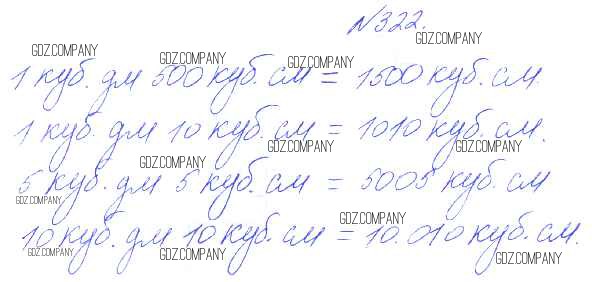 №322.
GDZ.COMPANY
GDZ.COMPANY
GDZ.COMPANY
1 куб. дм 500 куб. см = 1500 куб. см
1 куб. дм 10 куб. см = 1010 куб. см.
GDZ.COMPANY
GDZ.COMPANY
GDZ.COMPANY
5 куб. дм 5 куб. см = 5005 куб. см
GDZ.COMPANY
GDZ.COMPANY
10 куб. дм 10 куб. см = 10.010 куб. см.
GDZ.COMPANY
GDZ.COMPANY